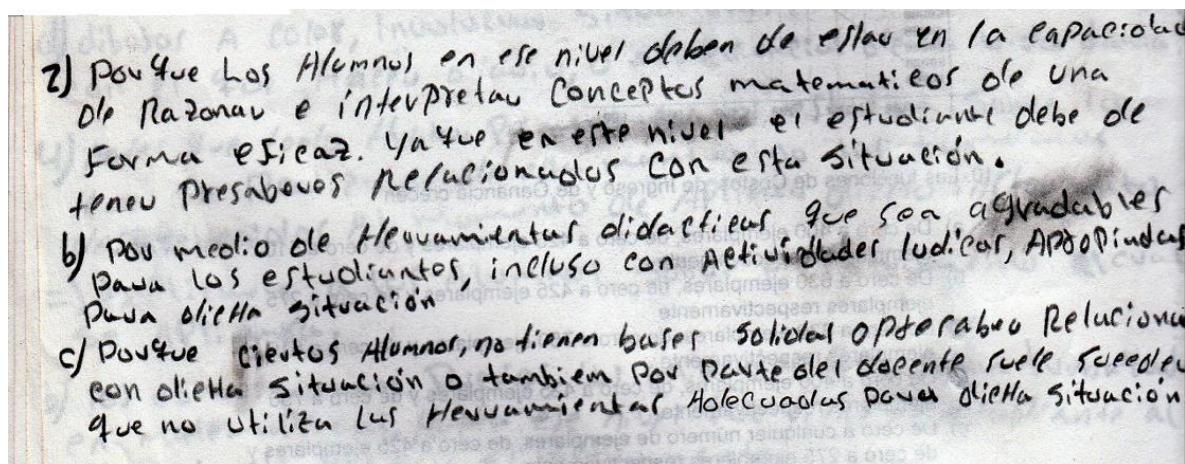 2) Porque Los Alumnos en ese nivel deben de estar en la capacidad
De Razonar e interpretar Conceptos matematicos de una
Forma eficaz. Ya que en este nivel el estudiante debe de
tener Presaberes Relacionados Con esta situación.
b) Por medio de Herramientas didacticas que sea agradables
Para los estudiantes, incluso con Actividades ludicas, Apropiadas
Para dicha situación,
c) Porque ciertos Alumnos, no tienen bases solidas o Presaberes
con dicha situación o tambien Por Parte del docente suele suceder
que no utiliza las Herramientas Adecuadas para dicha situación